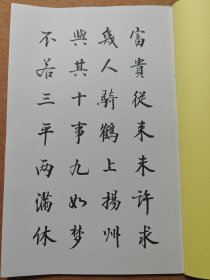 富貴從来未許求
幾人騎鶴上揚州
與其十事九如梦
不若三平两满休